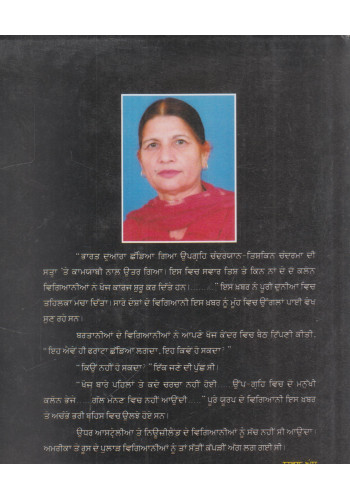 "ਭਾਰਤ ਦੁਆਰਾ ਛੱਡਿਆ ਗਿਆ ਉਪਗ੍ਰਹਿ ਚੰਦਰਯਾਨ-ਤਿਸ਼ਕਿਨ ਚੰਦਰਮਾ ਦੀ
ਸਤ੍ਹਾ 'ਤੇ ਕਾਮਯਾਬੀ ਨਾਲ ਉਤਰ ਗਿਆ। ਇਸ ਵਿਚ ਸਵਾਰ ਤਿਸ਼ ਤੇ ਕਿਨ ਨਾਂ ਦੇ ਦੋ ਕਲੋਨ
ਵਿਗਿਆਨੀਆਂ ਨੇ ਖੋਜ ਕਾਰਜ ਸ਼ੁਰੂ ਕਰ ਦਿੱਤੇ ਹਨ.... ।" ਇਸ ਖ਼ਬਰ ਨੇ ਪੂਰੀ ਦੁਨੀਆਂ ਵਿਚ
ਤਹਿਲਕਾ ਮਚਾ ਦਿੱਤਾ। ਸਾਰੇ ਦੇਸ਼ਾਂ ਦੇ ਵਿਗਿਆਨੀ ਇਸ ਖ਼ਬਰ ਨੂੰ ਮੂੰਹ ਵਿਚ ਉਂਗਲਾਂ ਪਾਈ ਵੇਖ
ਸੁਣ ਰਹੇ ਸਨ।
ਬਰਤਾਨੀਆਂ ਦੇ ਵਿਗਿਆਨੀਆਂ ਨੇ ਆਪਣੇ ਖੋਜ ਕੇਂਦਰ ਵਿਚ ਬੈਠ ਟਿੱਪਣੀ ਕੀਤੀ,
"ਇਹ ਐਵੇਂ ਹੀ ਫਰਾਟਾ ਛੱਡਿਆ ਲਗਦਾ, ਇਹ ਕਿਵੇਂ ਹੋ ਸਕਦਾ?"
"ਕਿਉਂ ਨਹੀਂ ਹੋ ਸਕਦਾ?" ਇੱਕ ਜਣੇ ਦੀ ਪੁੱਛ ਸੀ।
"ਖੋਜ਼ ਬਾਰੇ ਪਹਿਲਾਂ ਤੇ ਕਦੇ ਚਰਚਾ ਨਹੀਂ ਹੋਈ.... ਉੱਪ-ਗ੍ਰਹਿ ਵਿਚ ਦੋ ਮਨੁੱਖੀ
ਕਲੋਨ ਭੇਜੇ.... ਗੱਲ ਮੰਨਣ ਵਿਚ ਨਹੀਂ ਆਉਂਦੀ....।" ਪੂਰੇ ਯੂਰਪ ਦੇ ਵਿਗਿਆਨੀ ਇਸ ਖ਼ਬਰ
ਤੇ ਅਚੰਭੇ ਭਰੀ ਬਹਿਸ ਵਿਚ ਉਲਝੇ ਹੋਏ ਸਨ।
ਉਧਰ ਆਸਟ੍ਰੇਲੀਆ ਤੇ ਨਿਊਜ਼ੀਲੈਂਡ ਦੇ ਵਿਗਿਆਨੀਆਂ ਨੂੰ ਸੱਚ ਨਹੀਂ ਸੀ ਆਉਂਦਾ।
ਅਮਰੀਕਾ ਤੇ ਰੂਸ ਦੇ ਪੁਲਾੜ ਵਿਗਿਆਨੀਆਂ ਨੂੰ ਤਾਂ ਸੱਤੀਂ ਕੱਪੜੀਂ ਅੱਗ ਲਗ ਗਈ ਸੀ।